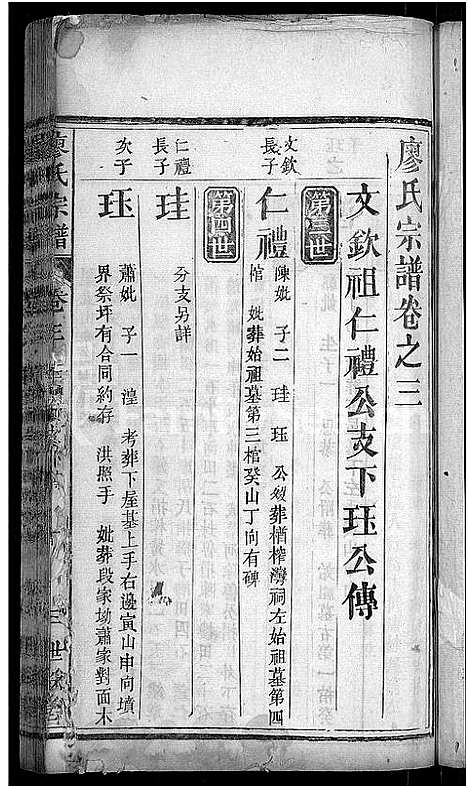 廖氏宗譜卷之三
文欽祖仁禮公支下珏公傳
第三世
文欽
長子
仁禮
陳妣 子二 珪 珏 公歿葬楢榨灣祠左始祖墓第四
棺 妣葬始祖墓第三棺癸山丁向有碑
第四世
仁禮
長子
珪
分支另詳
次子
珏
蕭妣 子一 湟 考葬下屋基上手右邊寅山申向墳
界祭坪有合同約存 洪照手 妣葬段家坳蕭家對面木
廖氏宗譜
卷三